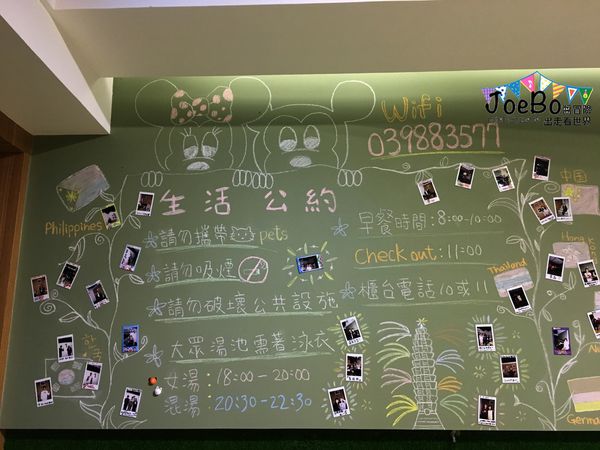 JoeBo愛冒險
出走看世界
Wifi
039883577
生活公約
Philippines
中国
請勿攜帶 pets
早餐時間：8:00-10:00
請勿吸煙
Check out：11:00
Thailand
請勿破壞公共設施
櫃台電話10或11
大眾湯池需著泳衣
女湯：18:00-20:00
混湯：20:30-22:30